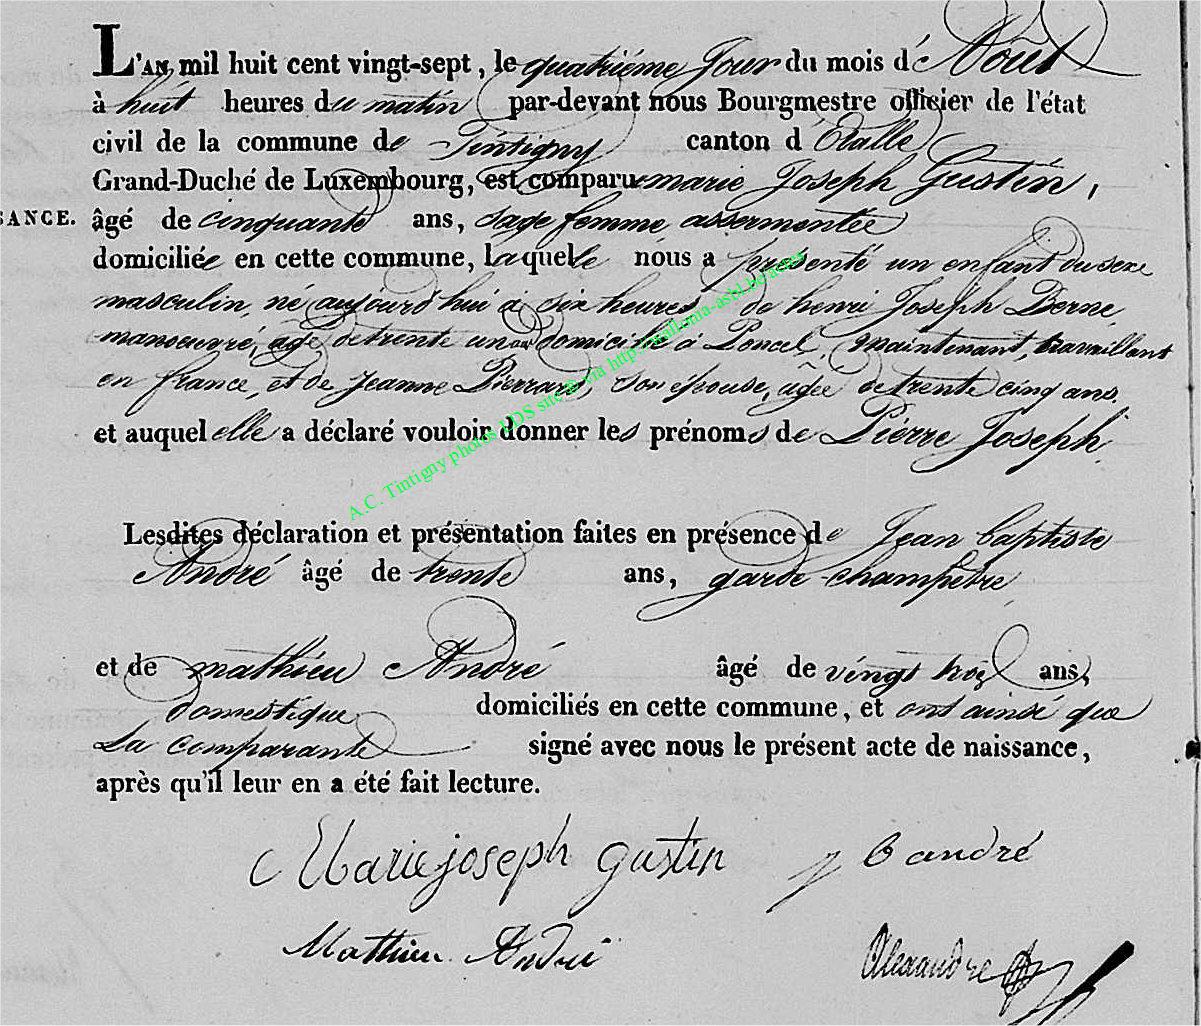 L'AN mil huit cent vingt-sept, le quatrième jour du mois d'Août
à huit heures du matin par-devant nous Bourgmestre officier de l'état
civil de la commune de Tintigny canton d'Etalle
Grand-Duché de Luxembourg, est comparu marie Joseph Gustin,
SANCE. âgé de cinquante ans, sage femme assermentée
domiciliée en cette commune, laquelle nous a présenté un enfant du sexe
masculin, né aujourd'hui à six heures, de henri Joseph Derne
manoeuvre, agé de trente un an domicilié à Poncel, maintenant, travaillant
en france, et de Jeanne Pierrard, son épouse, agée de trente cinq ans,
et auquel elle a déclaré vouloir donner les prénoms de Pierre Joseph
A.C. Tintigny photos LDS site © via http://malloma-asbl.be/actes
Lesdites déclaration et présentation faites en présence de Jean baptiste
André âgé de trente ans, garde-champêtre
et de mathieu André âgé de vingt trois ans,
domestique domiciliés en cette commune, et ont ainsi que
La comparante signé avec nous le présent acte de naissance,
après qu'il leur en a été fait lecture.
Marie joseph gustin j b andré
Mathieu André Alexandre